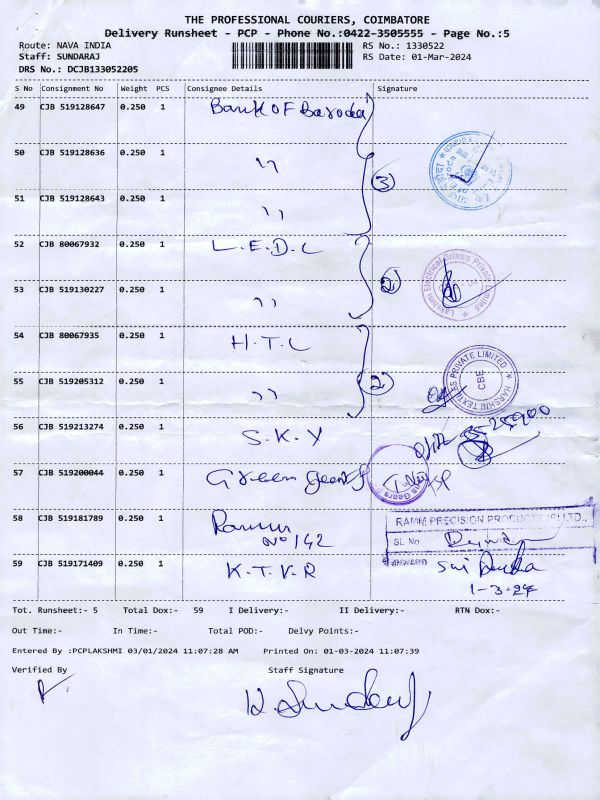 THE PROFESSIONAL COURIERS, COIMBATORE
Delivery Runsheet - PCP - Phone No.:0422-3505555 - Page No.:5
Route: NAVA INDIA RS No.: 1330522
Staff: SUNDARAJ RS Date: 01-Mar-2024
DRS No.: DCJB133052205
S No Consignment No Weight PCS Consignee Details Signature
49 CJB 519128647 0.250 1 Bank OF Baroda
50 CJB 519128636 0.250 1 "
3
51 CJB 519128643 0.250 1 "
52 CJB 80067932 0.250 1 L.E.D.L
Lakshmi Electrical Drives Private Limited
53 CJB 519130227 0.250 1 " 2
54 CJB 80067935 0.250 1 H.T.L
HARSHNI TEXTILES PRIVATE LIMITED
CBE
55 CJB 519205312 0.250 1 " 2
56 CJB 519213274 0.250 1 S.K.Y
57 CJB 519200044 0.250 1 Green gears
58 CJB 519181789 0.250 1 Ramm
No 142
RAMM PRECISION PRODUCTS (P) LTD.,
Sl. No
59 CJB 519171409 0.250 1 K.T.V.R
Sai
1-3-24
Tot. Runsheet:- 5 Total Dox:- 59 I Delivery:- II Delivery:- RTN Dox:-
Out Time:- In Time:- Total POD:- Delvy Points:-
Entered By :PCPLAKSHMI 03/01/2024 11:07:28 AM Printed On: 01-03-2024 11:07:39
Verified By Staff Signature